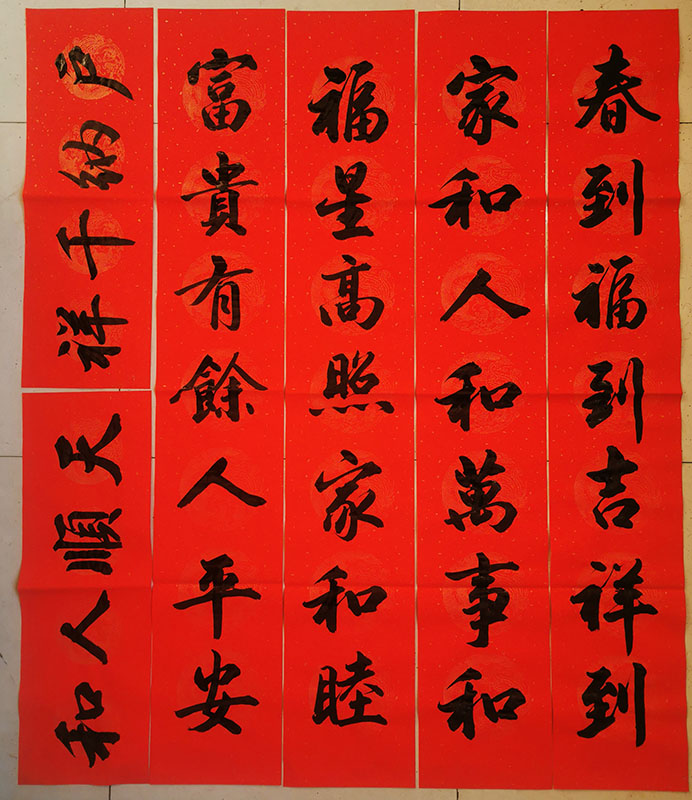 春到福到吉祥到
家和人和萬事和
福星高照家和睦
富貴有餘人平安
户納千祥
天順人和